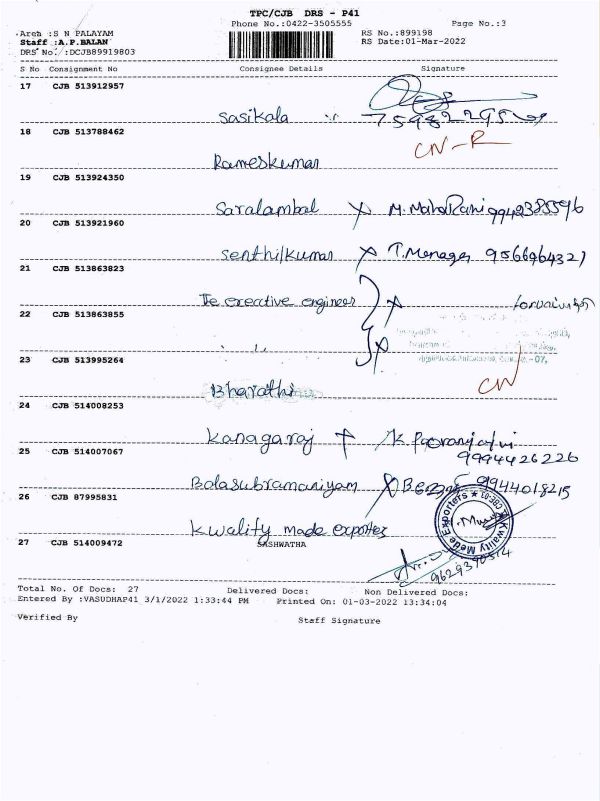 TPC/CJB DRS - P41
Phone No.:0422-3505555 Page No.:3
Area :S N PALAYAM RS No.:899198
Staff :A.P.BALAN RS Date:01-Mar-2022
DRS No. :DCJB89919803
S No Consignment No Consignee Details Signature
17 CJB 513912957
Sasikala
18 CJB 513788462 CN-R
Rameskumar
19 CJB 513924350
Saralambal M. MahaRani 9942385596
20 CJB 513921960
Senthilkumar T. Menager 9566964327
21 CJB 513863823
The exective engineer
22 CJB 513863855
23 CJB 513995264 CN
Bharathi
24 CJB 514008253
Kanagaraj
9994426226
25 CJB 514007067
Balasubramaniyam 9944018215
26 CJB 87995831
Kwality made exportes
Kwality Mede Exporters
27 CJB 514009472 SASHWATHA
Total No. Of Docs: 27 Delivered Docs: Non Delivered Docs:
Entered By :VASUDHAP41 3/1/2022 1:33:44 PM Printed On: 01-03-2022 13:34:04
Verified By Staff Signature